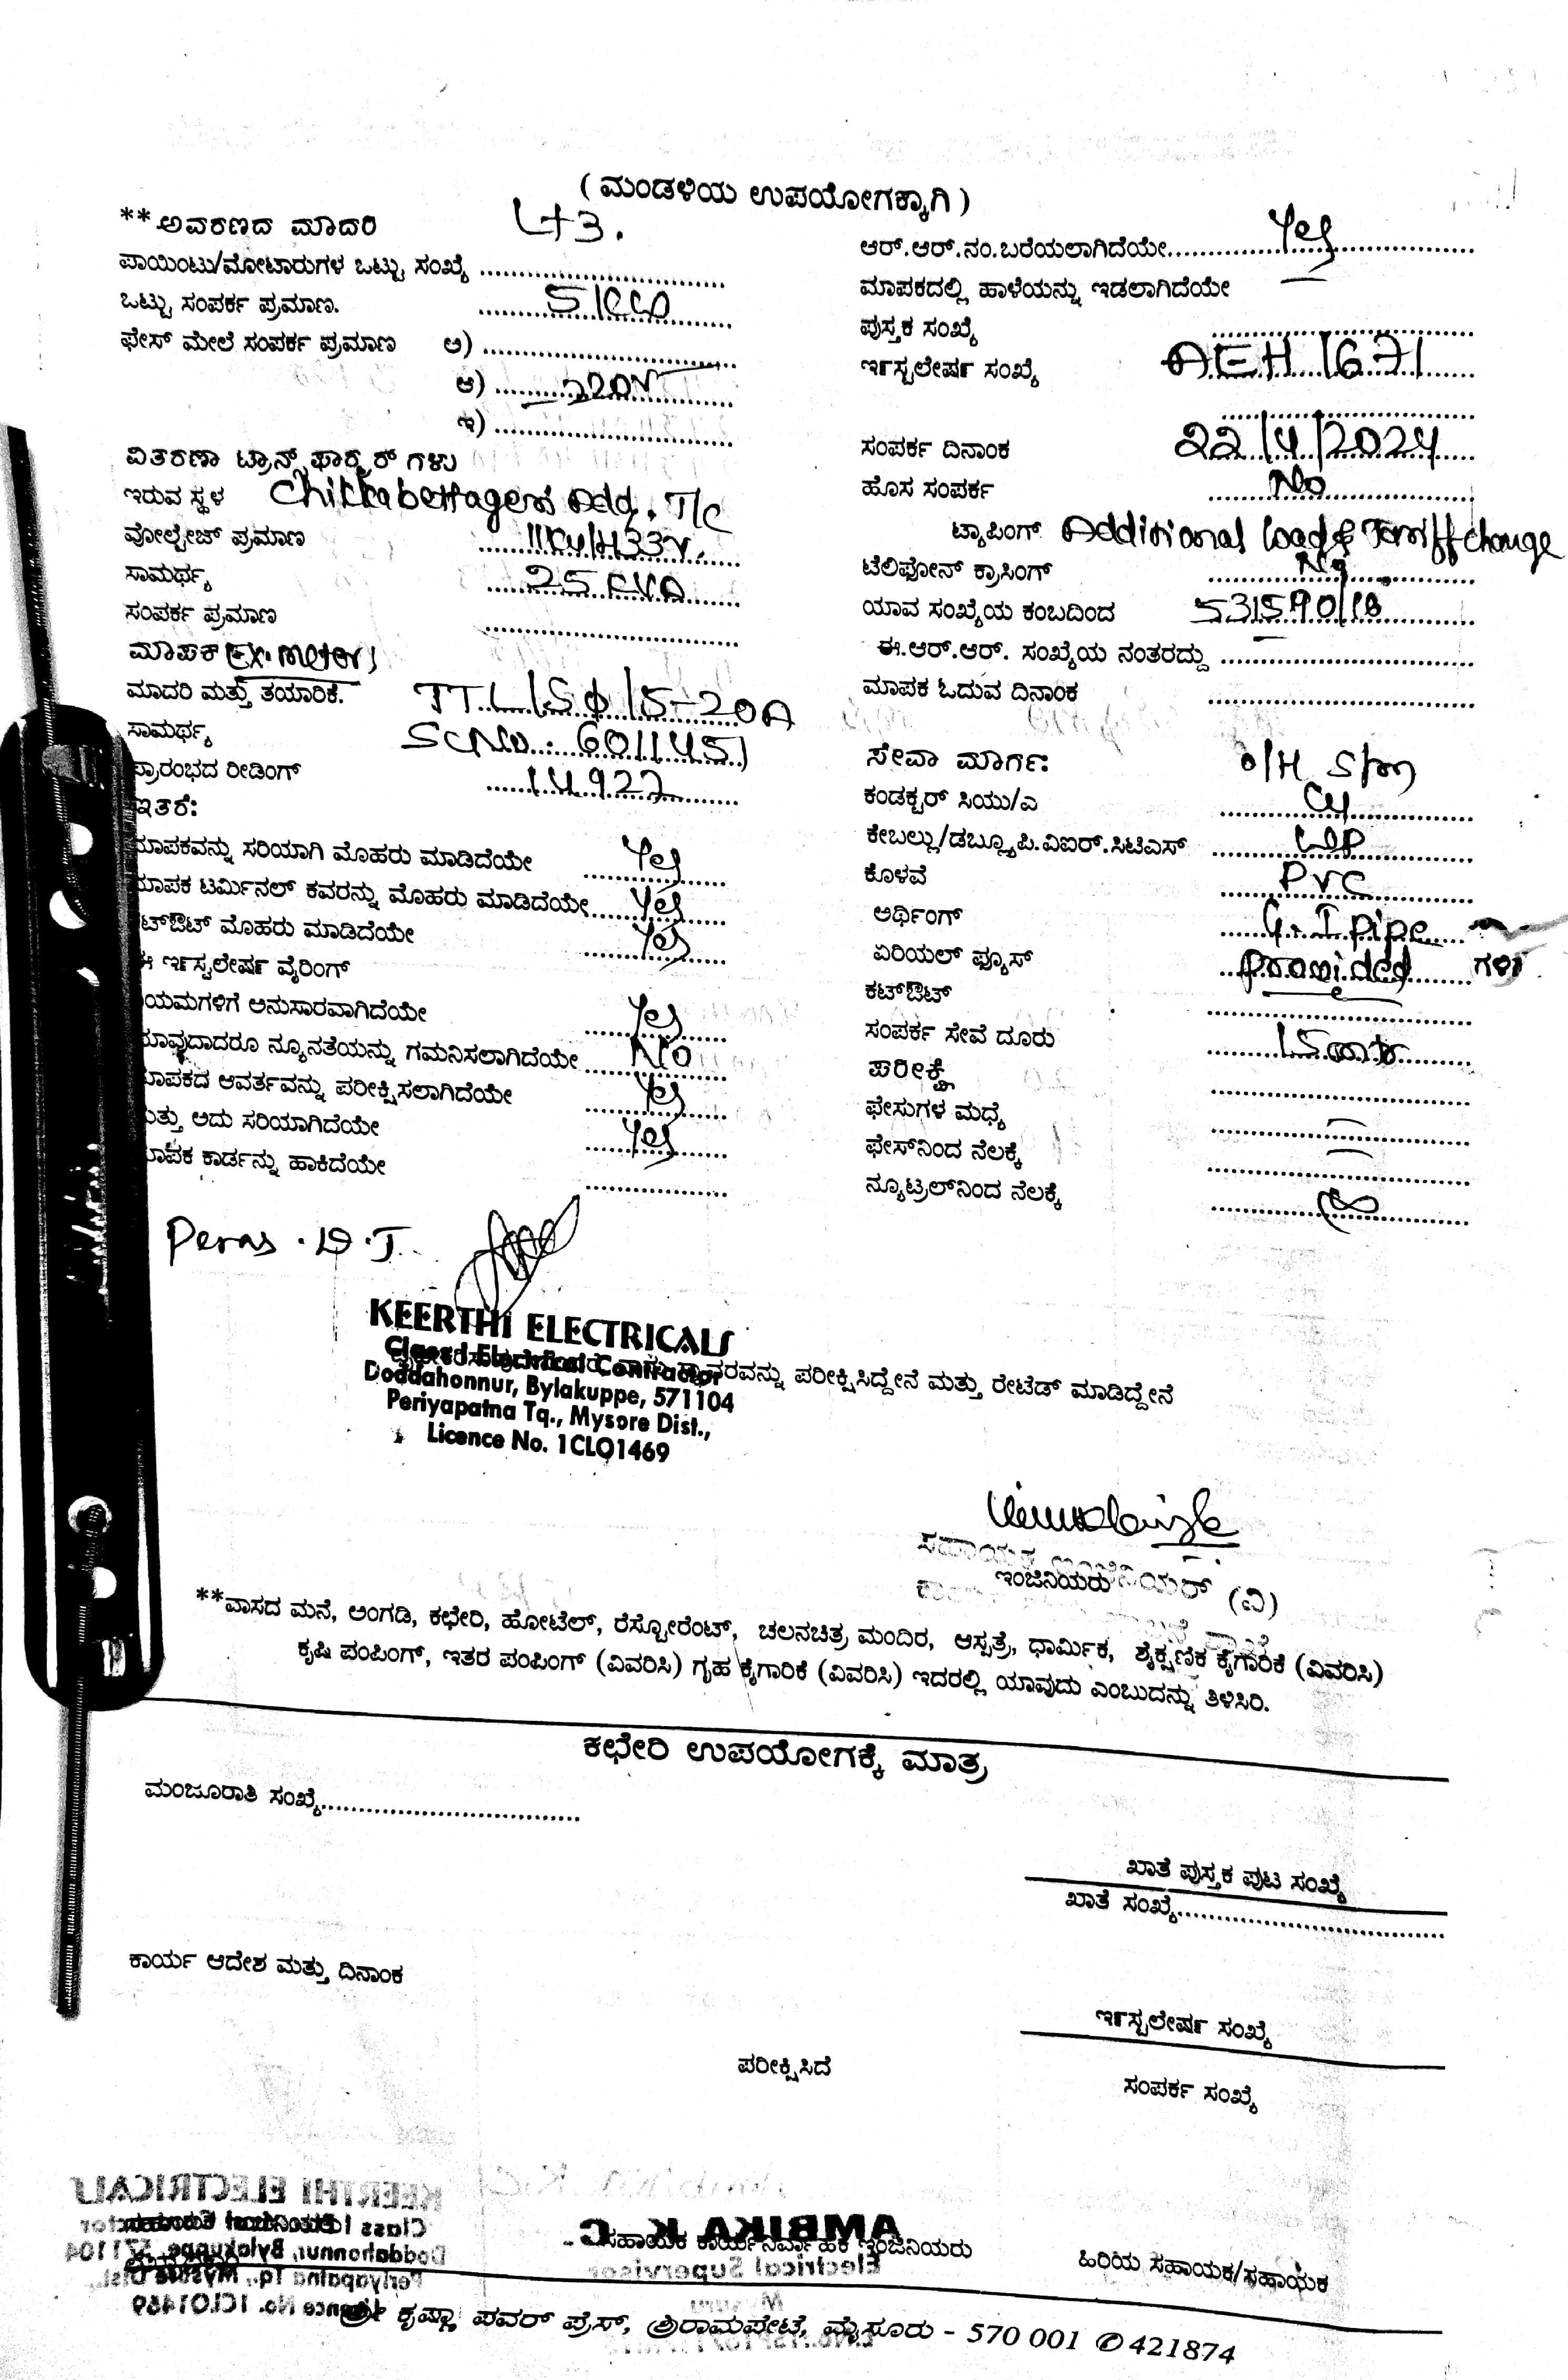 ( ಮಂಡಳಿಯ ಉಪಯೋಗಕ್ಕಾಗಿ )
**ಅವರಣದ ಮಾದರಿ Lt3.
ಪಾಯಿಂಟು/ಮೋಟಾರುಗಳ ಒಟ್ಟು ಸಂಖ್ಯೆ ..............................
ಒಟ್ಟು ಸಂಪರ್ಕ ಪ್ರಮಾಣ. 5KW
ಫೇಸ್ ಮೇಲೆ ಸಂಪರ್ಕ ಪ್ರಮಾಣ ಅ) ..............................
ಆ) 220V
ಇ) ..............................
ವಿತರಣಾ ಟ್ರಾನ್ಸ್‌ಫಾರ್ಮರ್ ಗಳು
ಇರುವ ಸ್ಥಳ Chikkabettageri Add. T/C
ವೋಲ್ಟೇಜ್ ಪ್ರಮಾಣ 11KV/433V.
ಸಾಮರ್ಥ್ಯ 25 KVA
ಸಂಪರ್ಕ ಪ್ರಮಾಣ ..............................
ಮಾಪಕ (Ex. meter)
ಮಾದರಿ ಮತ್ತು ತಯಾರಿಕೆ. TTL/Sφ/5-20A
ಸಾಮರ್ಥ್ಯ Sc No: 6011451
ಪ್ರಾರಂಭದ ರೀಡಿಂಗ್ 14927
ಇತರೆ:
ಮಾಪಕವನ್ನು ಸರಿಯಾಗಿ ಮೊಹರು ಮಾಡಿದೆಯೇ Yes
ಮಾಪಕ ಟರ್ಮಿನಲ್ ಕವರನ್ನು ಮೊಹರು ಮಾಡಿದೆಯೇ Yes
ಟ್‌ಔಟ್ ಮೊಹರು ಮಾಡಿದೆಯೇ Yes
ಈ ಇನ್‌ಸ್ಟಲೇಷನ್ ವೈರಿಂಗ್
ಯಮಗಳಿಗೆ ಅನುಸಾರವಾಗಿದೆಯೇ Yes
ಯಾವುದಾದರೂ ನ್ಯೂನತೆಯನ್ನು ಗಮನಿಸಲಾಗಿದೆಯೇ No
ಮಾಪಕದ ಆವರ್ತವನ್ನು ಪರೀಕ್ಷಿಸಲಾಗಿದೆಯೇ Yes
ಮತ್ತು ಅದು ಸರಿಯಾಗಿದೆಯೇ Yes
ಮಾಪಕ ಕಾರ್ಡನ್ನು ಹಾಕಿದೆಯೇ ..............................
ಆರ್.ಆರ್.ನಂ.ಬರೆಯಲಾಗಿದೆಯೇ Yes
ಮಾಪಕದಲ್ಲಿ ಹಾಳೆಯನ್ನು ಇಡಲಾಗಿದೆಯೇ
ಪುಸ್ತಕ ಸಂಖ್ಯೆ ..............................
ಇನ್‌ಸ್ಟಲೇಷನ್ ಸಂಖ್ಯೆ AEH 1671
ಸಂಪರ್ಕ ದಿನಾಂಕ 22/4/2024
ಹೊಸ ಸಂಪರ್ಕ No
ಟ್ಯಾಪಿಂಗ್ Additional load & Tariff change
ಟೆಲಿಫೋನ್ ಕ್ರಾಸಿಂಗ್ No
ಯಾವ ಸಂಖ್ಯೆಯ ಕಂಬದಿಂದ
ಈ.ಆರ್.ಆರ್. ಸಂಖ್ಯೆಯ ನಂತರದ್ದು ..............................
ಮಾಪಕ ಓದುವ ದಿನಾಂಕ ..............................
ಸೇವಾ ಮಾರ್ಗ: O/H S/m
ಕಂಡಕ್ಟರ್ ಸಿಯು/ಎ Cu
ಕೇಬಲ್ಲು/ಡಬ್ಲ್ಯೂಪಿ.ವಿಐರ್.ಸಿಟಿಎಸ್ WP
ಕೊಳವೆ PVC
ಅರ್ಥಿಂಗ್ G.I pipe
ಏರಿಯಲ್ ಫ್ಯೂಸ್ Provided ಗಳು
ಕಟ್‌ಔಟ್ ..............................
ಸಂಪರ್ಕ ಸೇವೆ ದೂರು 15mtr
ಪರೀಕ್ಷೆ ..............................
ಫೇಸುಗಳ ಮಧ್ಯೆ ..............................
ಫೇಸ್‌ನಿಂದ ನೆಲಕ್ಕೆ ..............................
ನ್ಯೂಟ್ರಲ್‌ನಿಂದ ನೆಲಕ್ಕೆ ∞
Peras . D . J
KEERTHI ELECTRICALS
Class I Electrical Contractor
ವನ್ನು ಪರೀಕ್ಷಿಸಿದ್ದೇನೆ ಮತ್ತು ರೇಟೆಡ್ ಮಾಡಿದ್ದೇನೆ
Doddahonnur, Bylakuppe, 571104
Periyapatna Tq., Mysore Dist.,
Licence No. 1CLO1469
ಸಹಾಯಕ ಇಂಜಿನಿಯರ್ (ವಿ)
ಇಂಜಿನಿಯರು
**ವಾಸದ ಮನೆ, ಅಂಗಡಿ, ಕಛೇರಿ, ಹೋಟೆಲ್, ರೆಸ್ಟೋರೆಂಟ್, ಚಲನಚಿತ್ರ ಮಂದಿರ, ಆಸ್ಪತ್ರೆ, ಧಾರ್ಮಿಕ, ಶೈಕ್ಷಣಿಕ ಕೈಗಾರಿಕೆ (ವಿವರಿಸಿ)
ಕೃಷಿ ಪಂಪಿಂಗ್, ಇತರ ಪಂಪಿಂಗ್ (ವಿವರಿಸಿ) ಗೃಹ ಕೈಗಾರಿಕೆ (ವಿವರಿಸಿ) ಇದರಲ್ಲಿ ಯಾವುದು ಎಂಬುದನ್ನು ತಿಳಿಸಿರಿ.
ಕಛೇರಿ ಉಪಯೋಗಕ್ಕೆ ಮಾತ್ರ
ಮಂಜೂರಾತಿ ಸಂಖ್ಯೆ..............................
ಖಾತೆ ಪುಸ್ತಕ ಪುಟ ಸಂಖ್ಯೆ
ಖಾತೆ ಸಂಖ್ಯೆ..............................
ಕಾರ್ಯ ಆದೇಶ ಮತ್ತು ದಿನಾಂಕ
ಇನ್‌ಸ್ಟಲೇಷನ್ ಸಂಖ್ಯೆ
ಪರೀಕ್ಷಿಸಿದೆ
ಸಂಪರ್ಕ ಸಂಖ್ಯೆ
KEERTHI ELECTRICALS
Class I Electrical Contractor
Doddahonnur, Bylakuppe, 571104
Periyapatna Tq., Mysore Dist.,
Licence No. 1CLO1469
AMBIKA K C
ಸಹಾಯಕ ಕಾರ್ಯನಿರ್ವಾಹಕ ಇಂಜಿನಿಯರು
Electrical Supervisor
ಹಿರಿಯ ಸಹಾಯಕ/ಸಹಾಯಕ
ಶ್ರೀ ಕೃಷ್ಣಾ ಪವರ್ ಪ್ರೆಸ್, ಶ್ರೀರಾಮಪೇಟೆ, ಮೈಸೂರು - 570 001 ✆ 421874